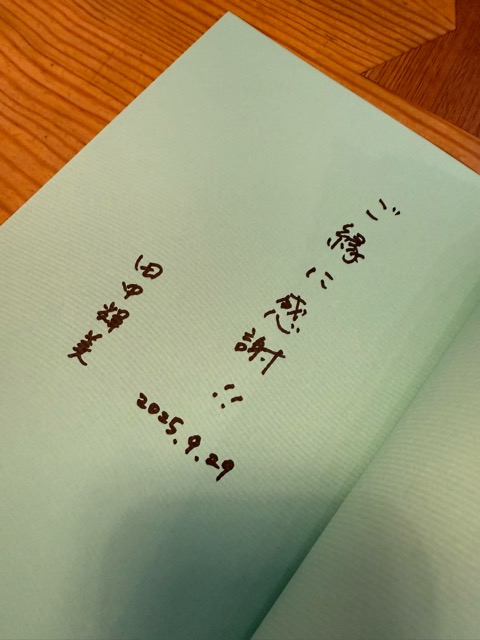 ご縁に感謝!!
田中輝美
2025.9.29